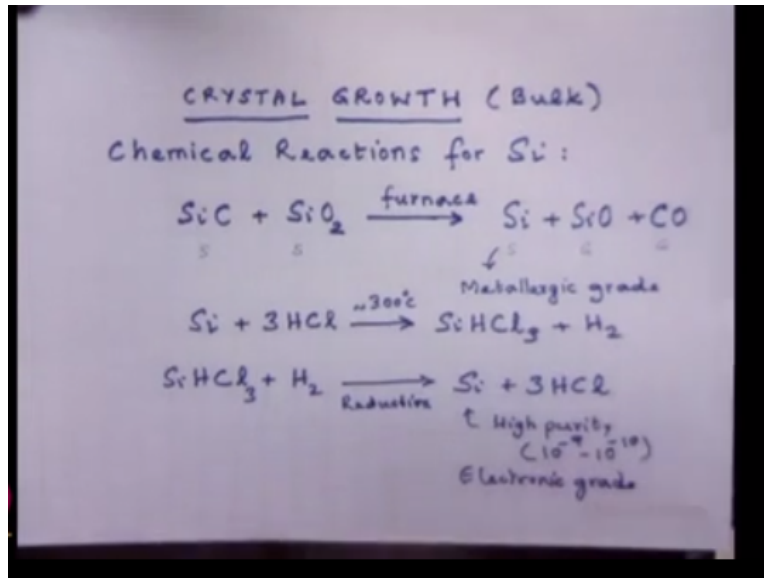 CRYSTAL GROWTH (Bulk)
Chemical Reactions for Si :
SiC + SiO₂ —furnace→ Si + SiO + CO
S S S G G
Metallergic grade
Si + 3HCl —~300°C→ SiHCl₃ + H₂
SiHCl₃ + H₂ —Reduction→ Si + 3HCl
↑ High purity
(10⁻⁹-10⁻¹⁰)
Electronic grade